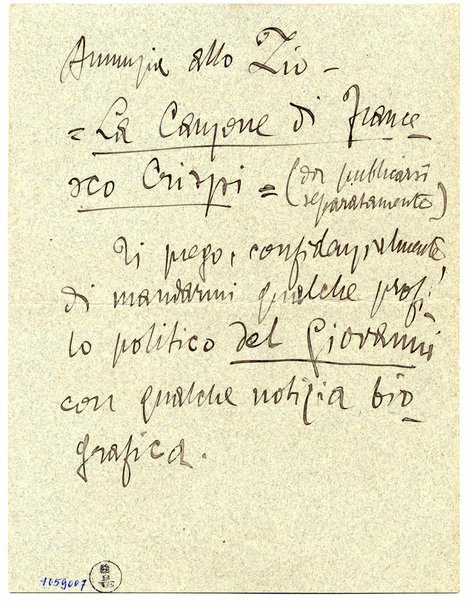 Annunzia allo Zio –
= La Canzone di France
sco Crispi = (da publicarsi
separatamente)
Ti prego, confidenzialmente
di mandarmi qualche profi
lo politico del Giovanni
con qualche notizia bio
grafica.
1059007